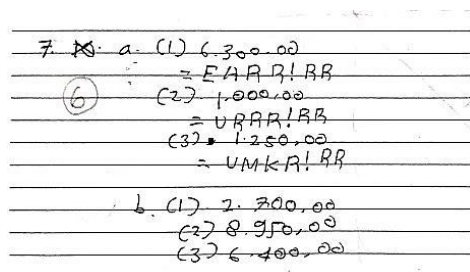 7. a. (1) 6.300.00
= EARR!RR
(6) (2) 1,000,00
= URRR!RR
(3) 1.250,00
= UMKR!RR
b. (1) 2.700,00
(2) 8.950,00
(3) 6.400,00